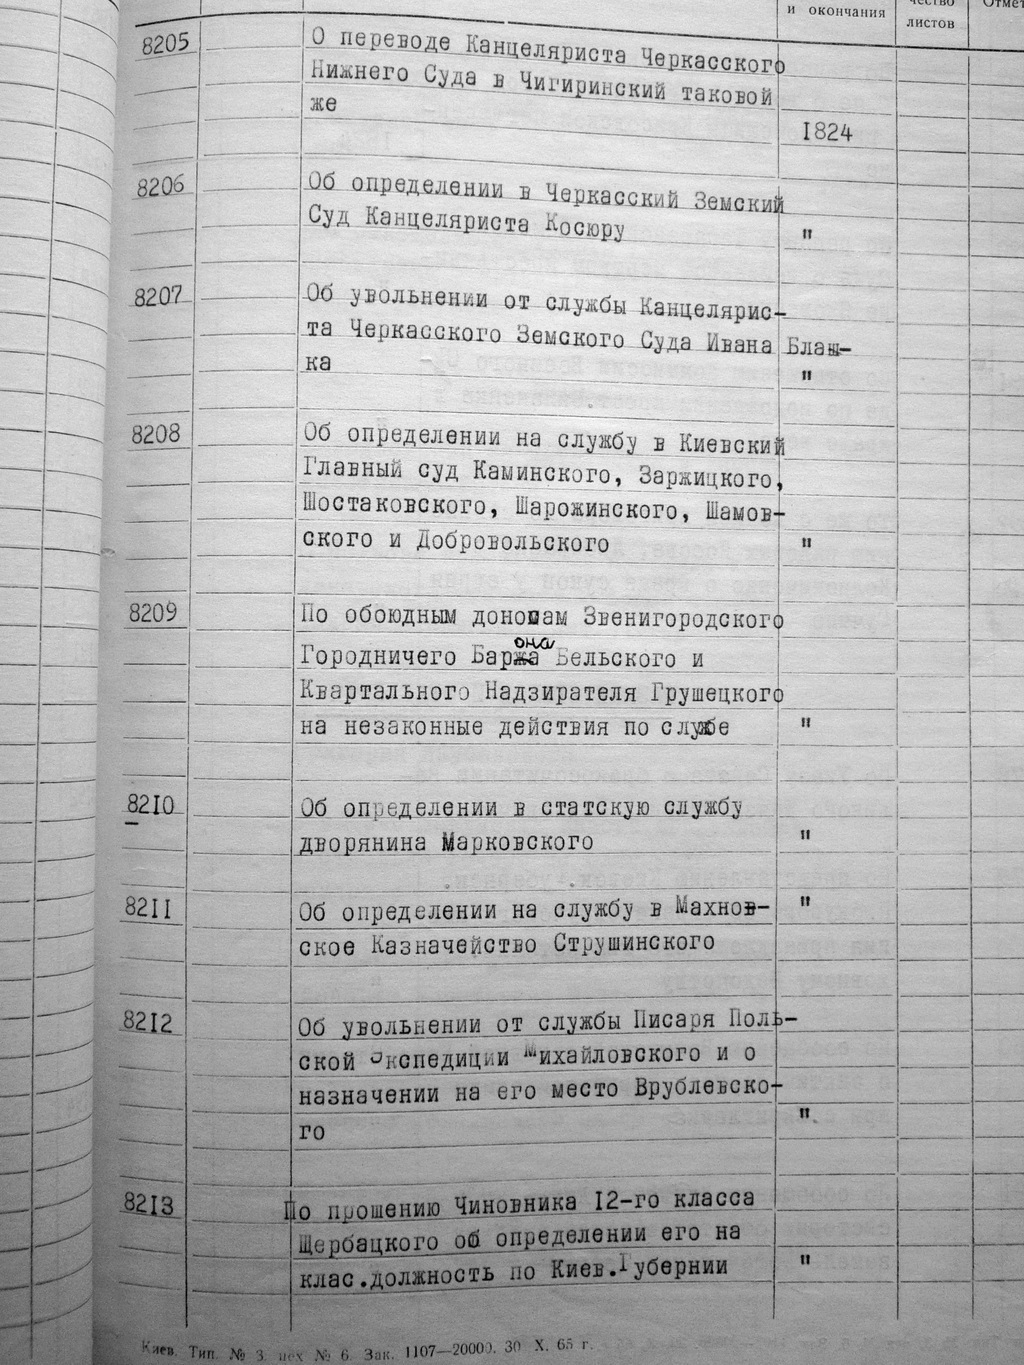 и окончания
чество
листов
Отмет
8205
О переводе Канцеляриста Черкасского
Нижнего Суда в Чигиринский таковой
же
1824
8206
Об определении в Черкасский Земский
Суд Канцеляриста Косюру
"
8207
Об увольнении от службы Канцелярис-
та Черкасского Земского Суда Ивана Блаш-
ка
"
8208
Об определении на службу в Киевский
Главный суд Каминского, Заржицкого,
Шостаковского, Шарожинского, Шамов-
ского и Добровольского
"
8209
По обоюдным доносам Звенигородского
она
Городничего Баржа Бельского и
Квартального Надзирателя Грушецкого
на незаконные действия по службе
"
8210
Об определении в статскую службу
дворянина Марковского
"
8211
Об определении на службу в Махнов-
"
ское Казначейство Струшинского
8212
Об увольнении от службы Писаря Поль-
ской Экспедиции Михайловского и о
назначении на его место Врублевско-
го
"
8213
По прошению Чиновника 12-го класса
Щербацкого об определении его на
клас.должность по Киев.Губернии
"
Киев. Тип. № 3 цех № 6. Зак. 1107—20000. 30 X. 65 г.